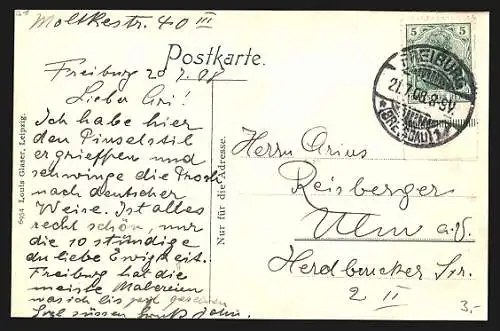 Moltkestr. 40 III
Postkarte.
Freiburg 20 7. 08
Lieber Ari!
Ich habe hier
den Pinselstil
ergrieffen und
schwinge die
nach deutscher
Weise. Ist alles
recht schön, nur
die 10 stündige
du liebe Ewigkeit.
Freiburg hat die
meiste Malereien
was ich bis jetzt gesehen
6954 Louis Glaser, Leipzig.
Nur für die Adresse.
5 5
FREIBURG
21.7.08.8-9V.
*(BREISGAU)1*
Herrn Arius
Reisberger
Ulm a.D.
Herdbrucker Str.
2 II
3.-